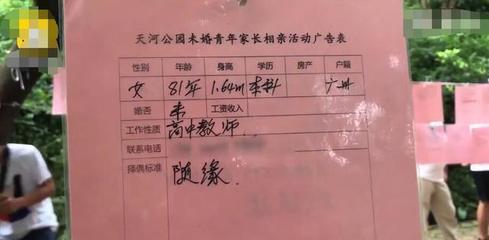 天河公园未婚青年家长相亲活动广告表
性别 年龄 身高 学历 房产 户籍
女 81年 1.64m 本科 广州
婚否 未 工资收入
工作性质 高中教师.
联系电话
择偶标准 随缘.